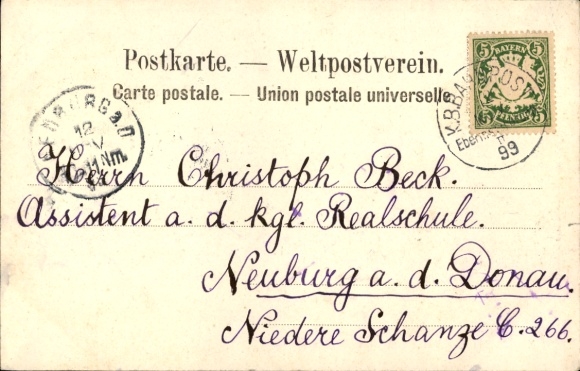 Postkarte. — Weltpostverein.
Carte postale. — Union postale universelle.
5 BAYERN 5
5 PFENNIG 5
K.B.BAHNPOST
99
NEUBURG a.D.
12
Nm.
Herrn Christoph Beck.
Assistent a. d. kgl. Realschule.
Neuburg a. d. Donau.
Niedere Schanze C. 266.